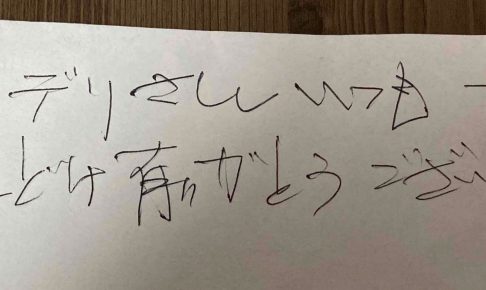 デリさんいつも
とどけ有りがとうござい